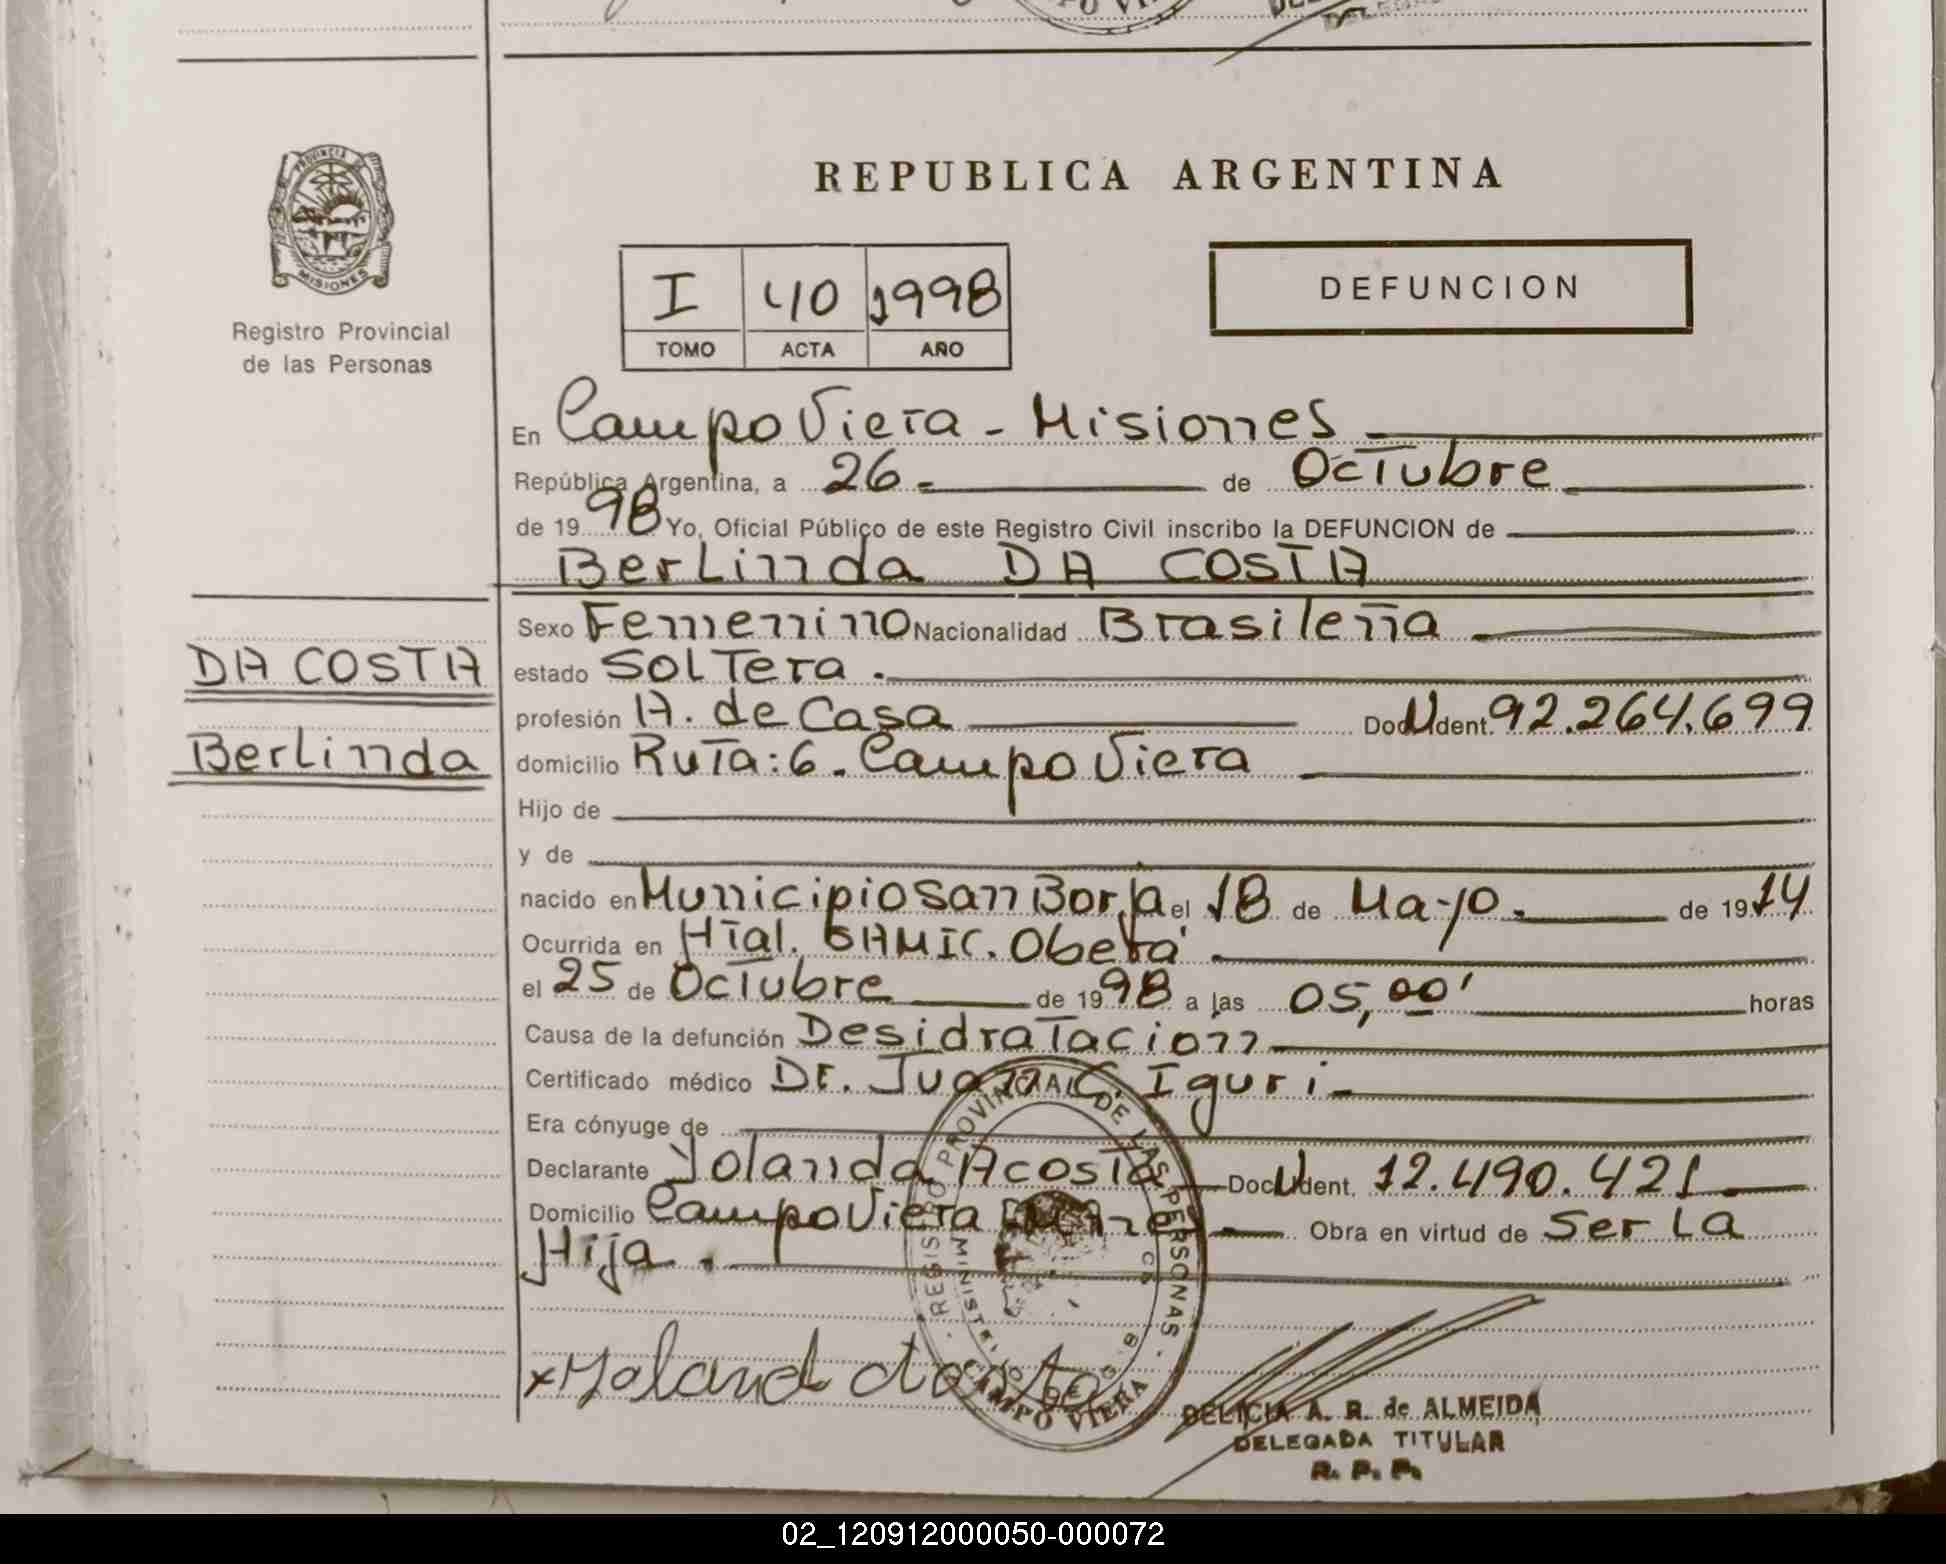 PROVINCIA DE
MISIONES
Registro Provincial
de las Personas
REPUBLICA ARGENTINA
I 40 1998
TOMO ACTA AÑO
DEFUNCION
En Campo Viera - Misiones
República Argentina, a 26 de Octubre
de 1998 Yo, Oficial Público de este Registro Civil inscribo la DEFUNCION de
Berlinda DA COSTA
Sexo Femenino Nacionalidad Brasileña
DA COSTA
estado Soltera.
profesión A. de Casa Doc. U ident. 92.264.699
Berlinda
domicilio Ruta: 6. Campo Viera
Hijo de
y de
nacido en Municipio San Borja el 18 de Mayo. de 1914
Ocurrida en Htal. SAMIC. Oberá
el 25 de Octubre de 1998 a las 05,00' horas
Causa de la defunción Desidratacion
Certificado médico Dr. Juan C. Iguri
Era cónyuge de
Declarante Yolanda Acosta Doc. U ident. 12.490.421
Domicilio Campo Viera Obra en virtud de Ser La
Hija.
REGISTRO PROVINCIAL DE LAS PERSONAS
CAMPO VIERA
DELICIA A. R. de ALMEIDA
DELEGADA TITULAR
R. P. P.
02_120912000050-000072